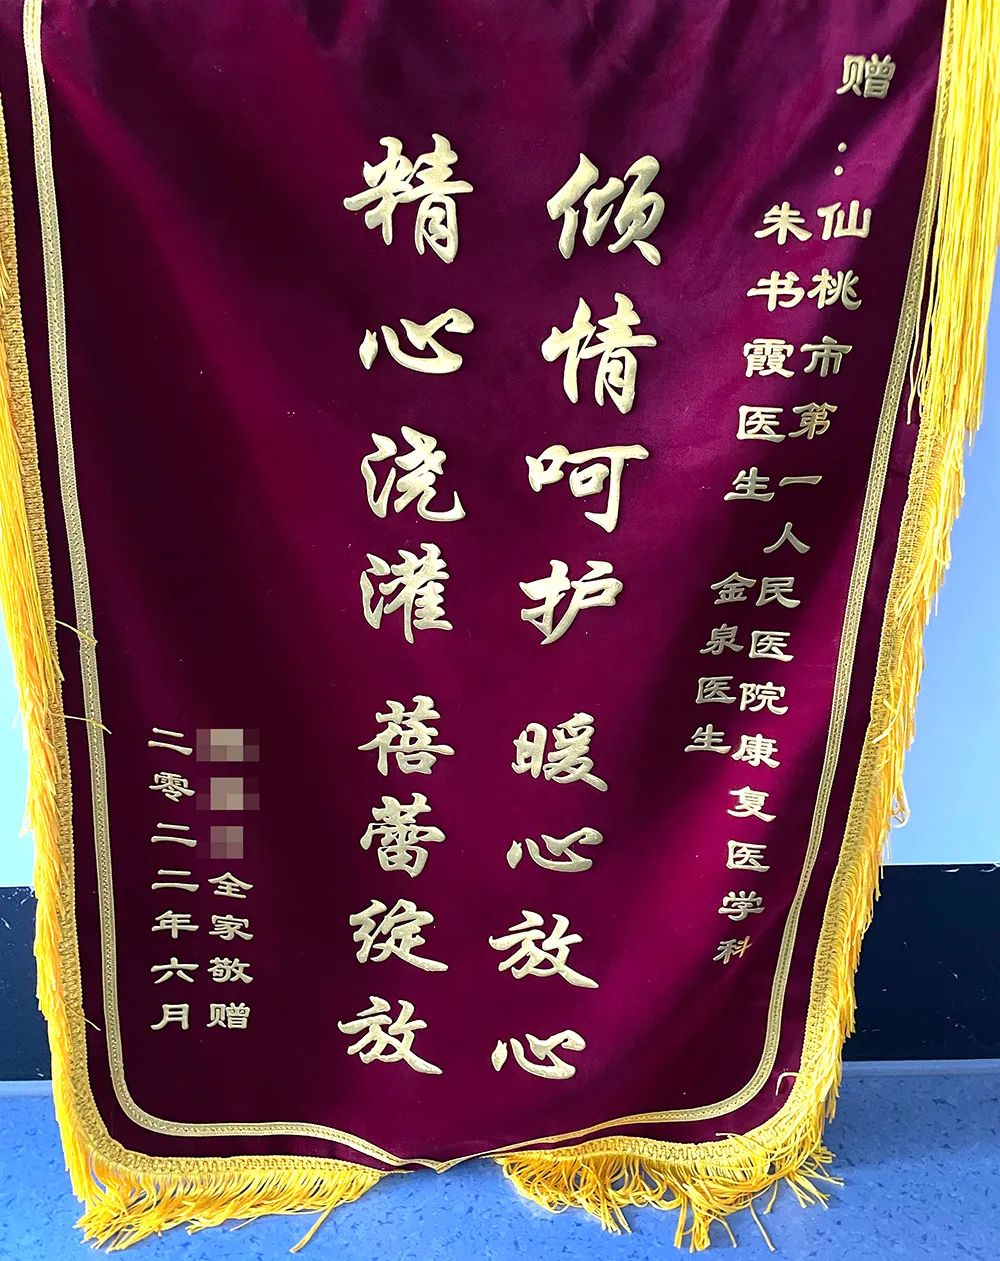 赠：仙桃市第一人民医院康复医学科
朱书霞医生 金泉医生
倾情呵护 暖心放心
精心浇灌 蓓蕾绽放
全家敬赠
二零二二年六月